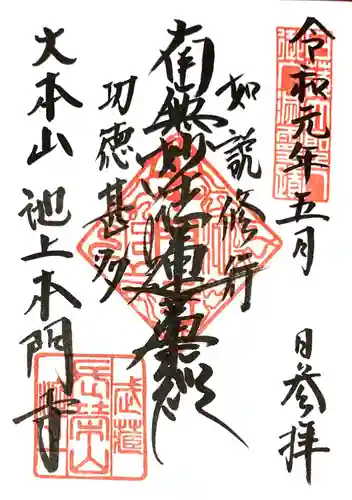 令和元年五月
日参拝
如説修行
南無妙法蓮華経
功徳甚多
大本山 池上本門寺
武蔵
長栄山